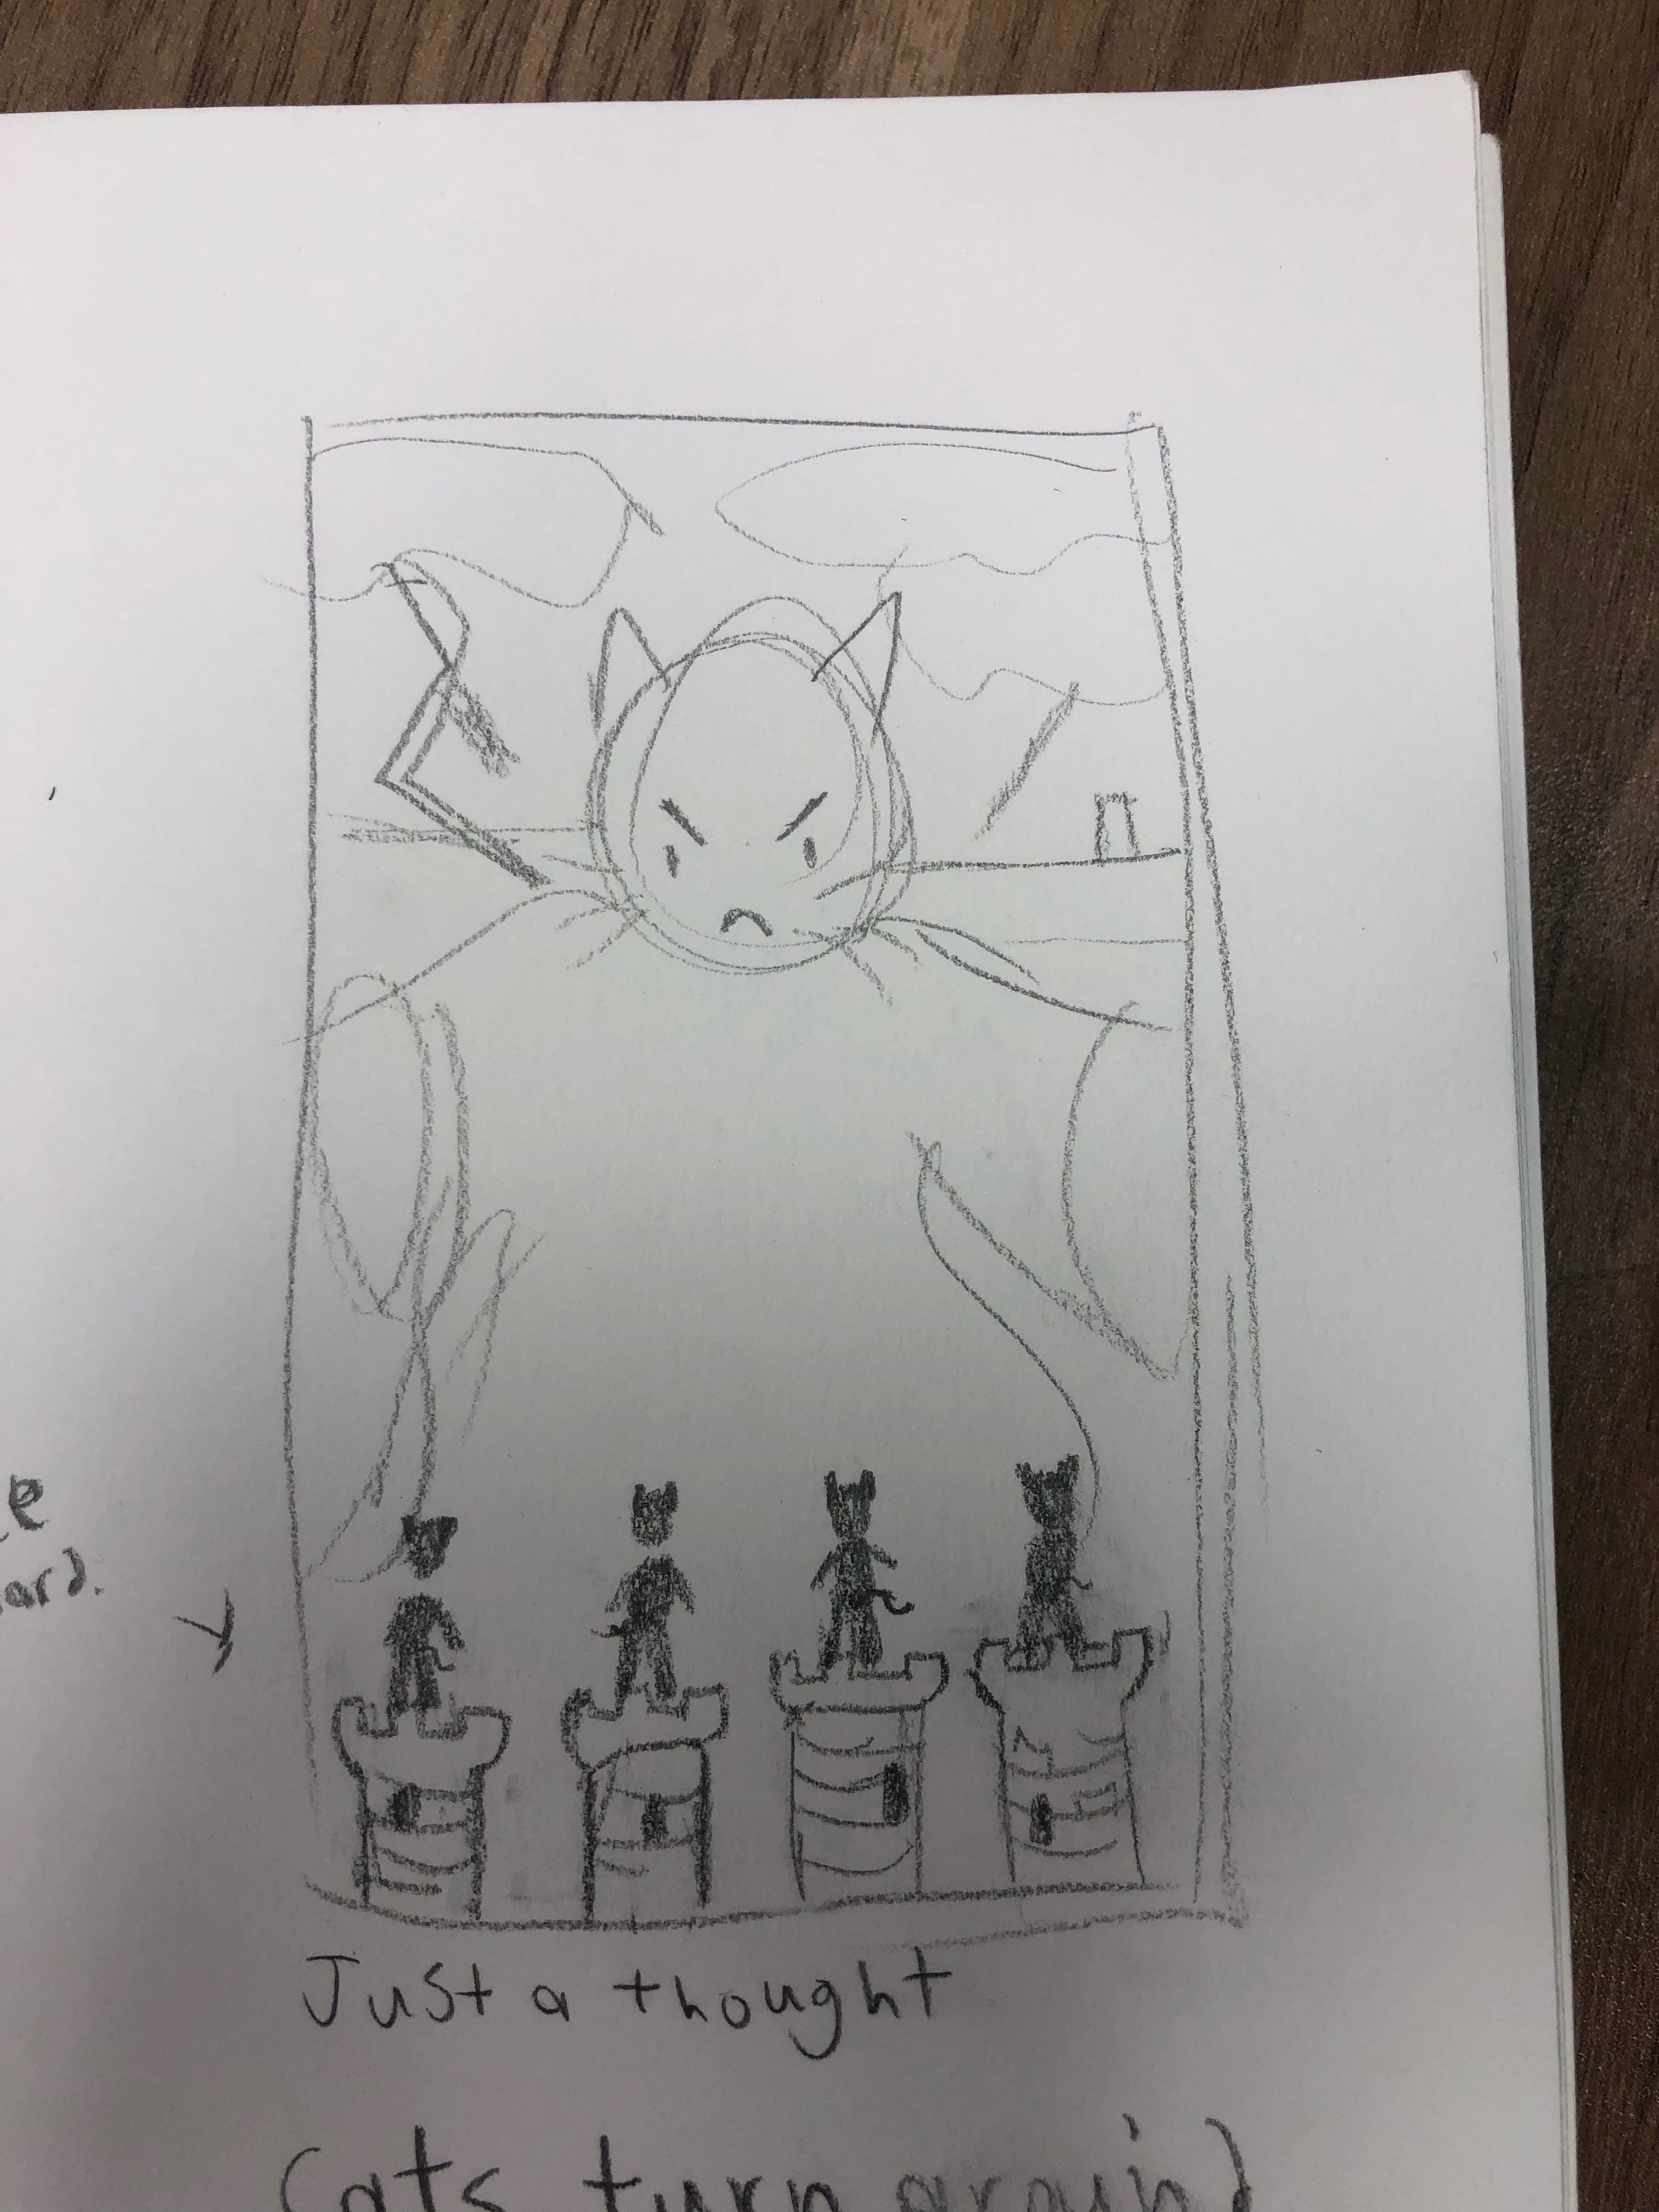 ard.
Just a thought
Cats turn around